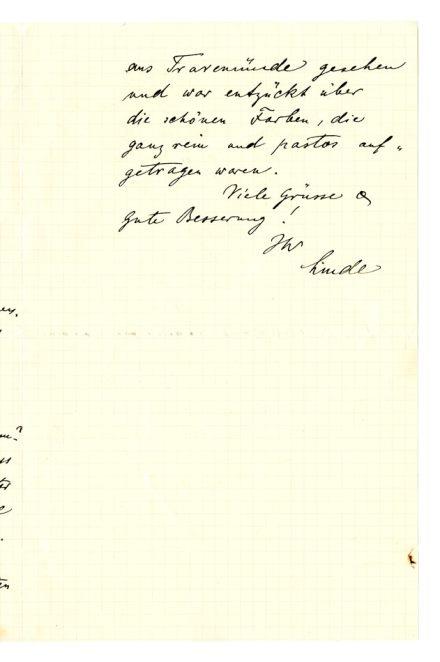 aus Travemünde gesehen
und war entzückt über
die schönen Farben, die
ganz rein und pastos auf-
getragen waren.
Viele Grüsse &
gute Besserung!
Ihr
Linde